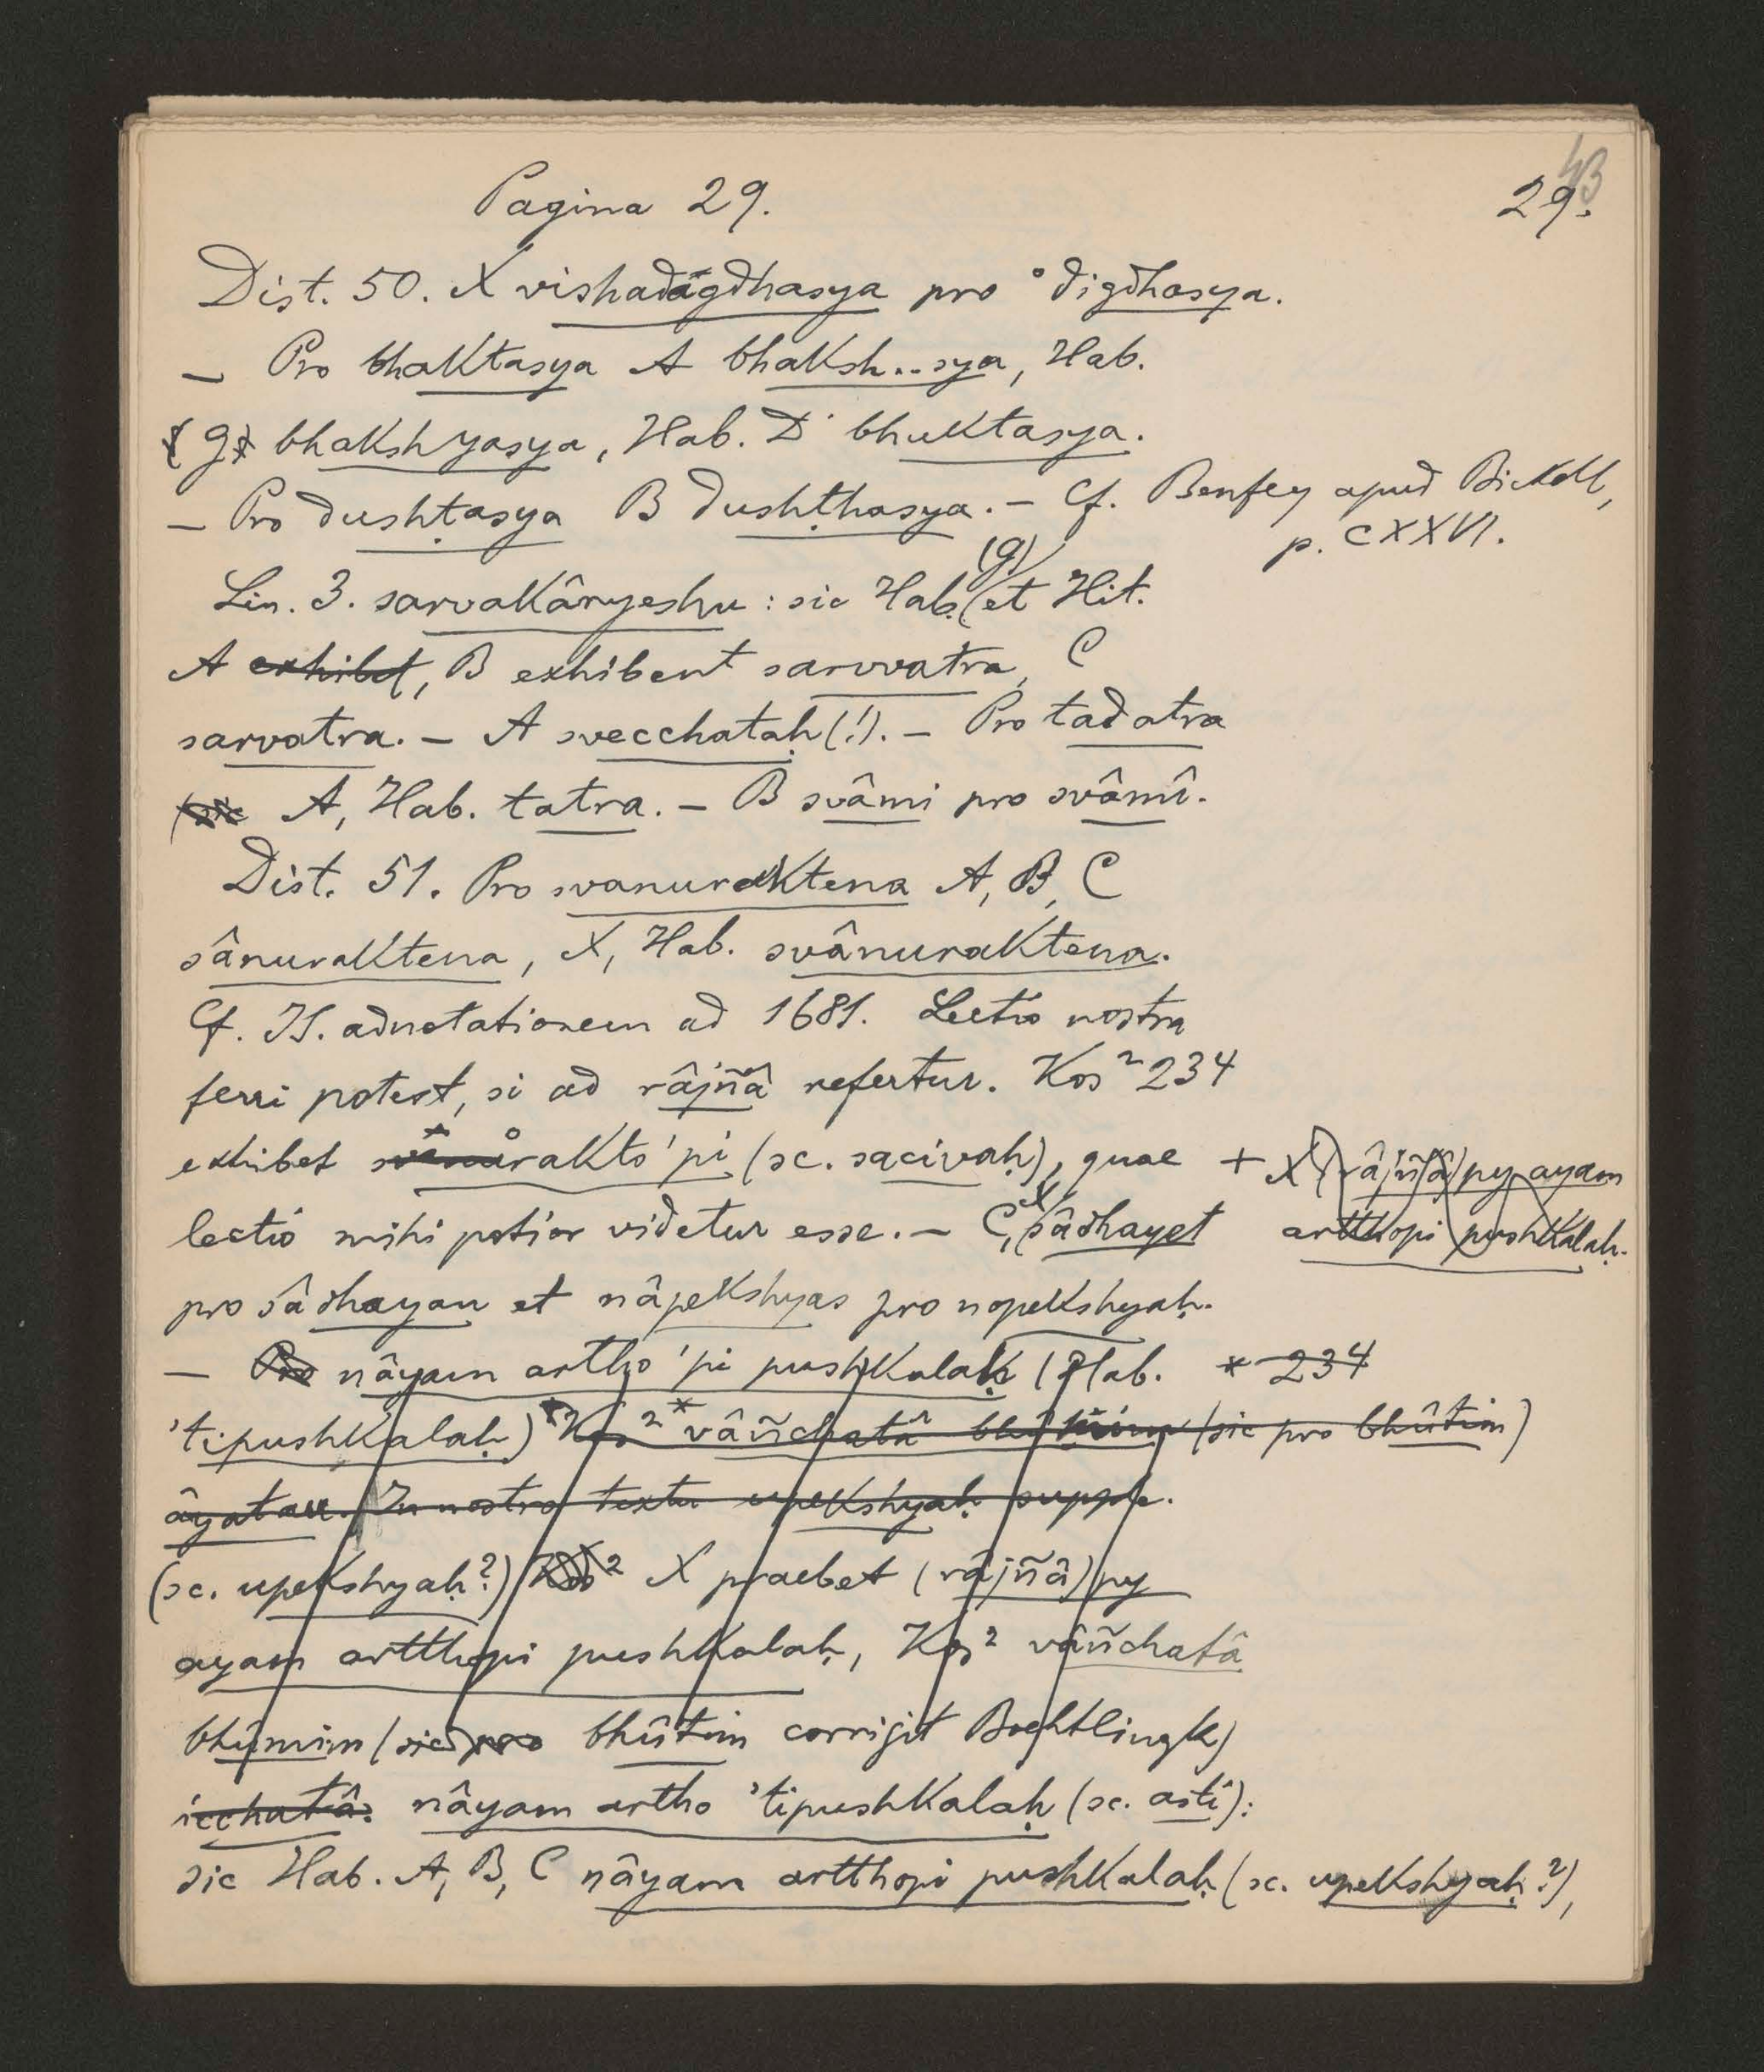 43
Pagina 29. 29.
Dist. 50. X vishadagdhasya pro °digdhasya.
– Pro bhaktasya A bhaksh..sya, Hab.
g bhakshyasya, Hab. D bhuktasya.
– Pro dushṭasya B dushṭhasya. – Cf. Benfey apud Bickell,
p. CXXVI.
Lin. 3. sarvakâryeshu : sic Hab. (g) et Hit.
A exhibet, B exhibent sarvvatra, C
sarvatra. – A svecchataḥ (!). – Pro tadatra
(sic A, Hab. tatra. – B svâmi pro svâmî.
Dist. 51. Pro svanuraktena A, B, C
sânuraktena, X, Hab. svânuraktena.
Cf. IS. adnotationem ad 1681. Lectio nostra
ferri potest, si ad râjñâ refertur. Kos² 234
exhibet rakto 'pi (sc. sacivaḥ), quae
lectio mihi potior videtur esse. – C, X sâdhayet
+ X (râjñâ) py ayam
artthopi pushkalaḥ.
pro sâdhayan et nâpekshyas pro nopekshyaḥ.
– Pro nâyam artho 'pi pushkalaḥ (Hab. * 234
'tipushkalaḥ) Kos² * vâñchatâ (sic pro bhûtim)
âyatau. In nostro textu upekshyaḥ supple.
(sc. upekshyaḥ?) Kos² X praebet (râjñâ) py
ayam artthopi pushkalaḥ, Kos² vâñchatâ
bhûmim (sic pro bhûtim corrigit Boehtlingk)
icchatâ: nâyam artho 'tipushkalaḥ (sc. asti):
sic Hab. A, B, C nâyam artthopi pushkalaḥ (sc. upekshyaḥ?),